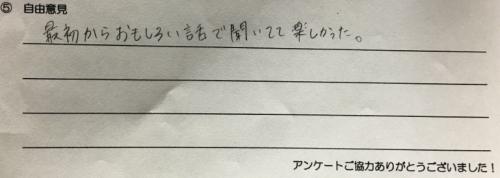 ⑤ 自由意見
最初からおもしろい話で聞いてて楽しかった。
アンケートご協力ありがとうございました！